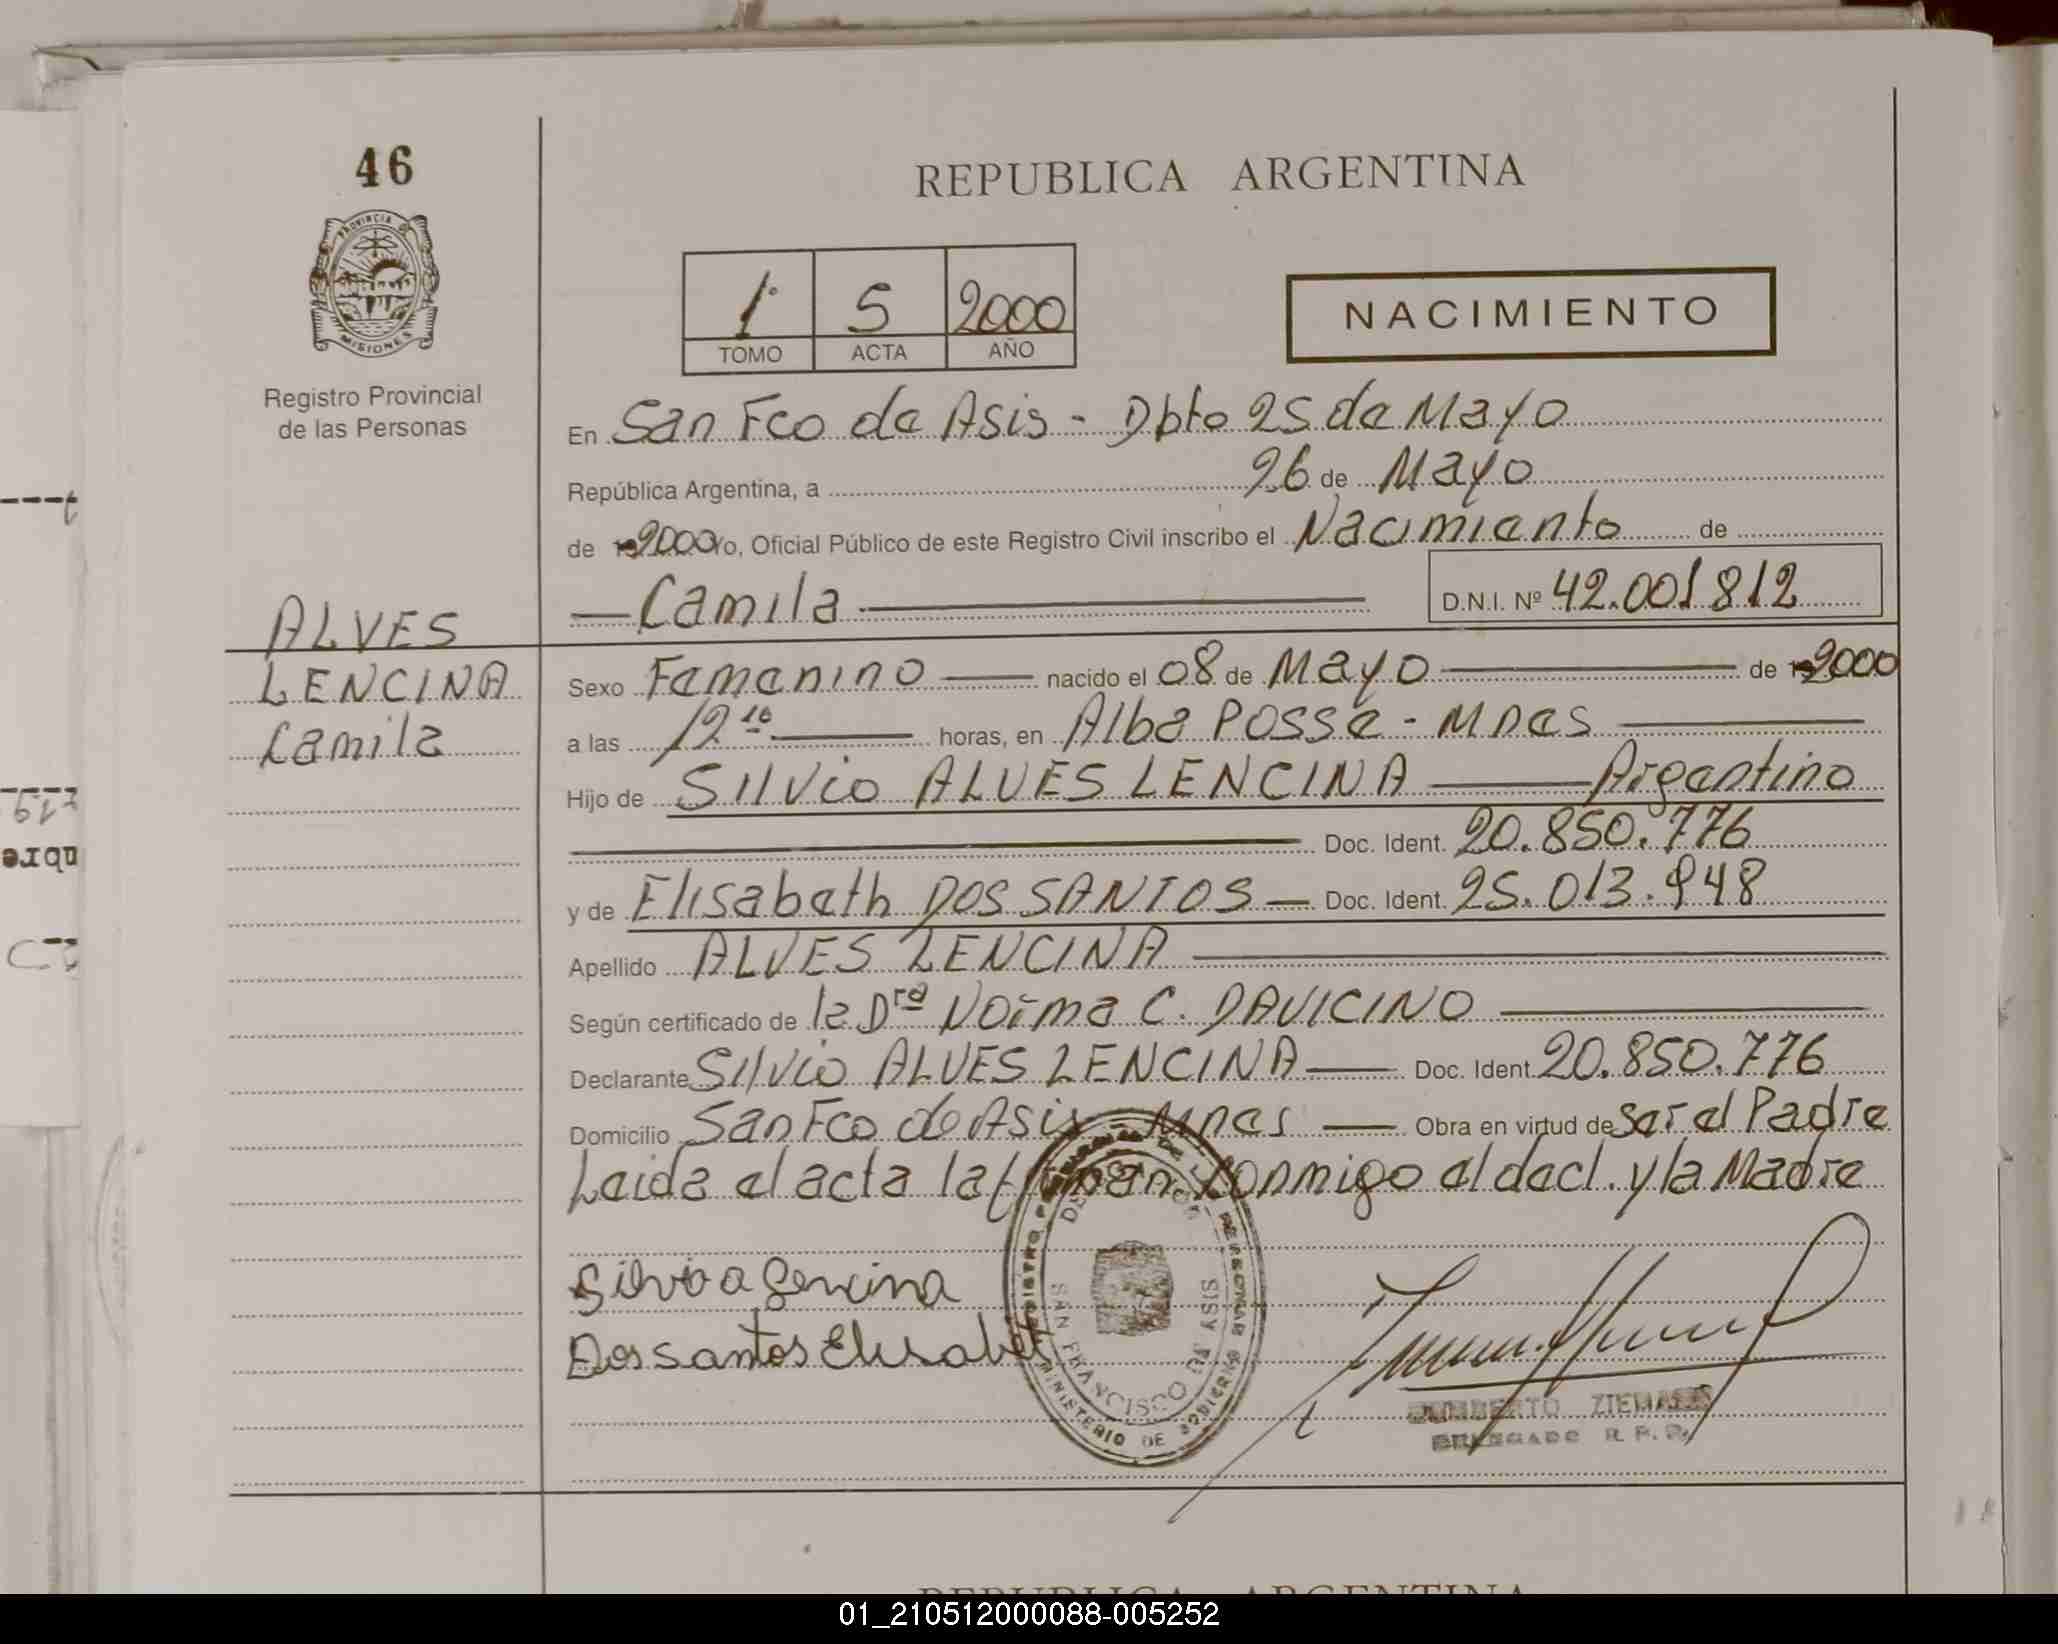 46
REPUBLICA ARGENTINA
PROVINCIA
MISIONES
Registro Provincial
de las Personas
1º 5 2000
TOMO ACTA AÑO
NACIMIENTO
En San Fco de Asis - Dpto 25 de Mayo
República Argentina, a 26 de Mayo
de 2000 Yo, Oficial Público de este Registro Civil inscribo el Nacimiento de
Camila D.N.I. Nº 42.001812
ALVES
LENCINA
Camila
Sexo Femenino nacido el 08 de Mayo de 2000
a las 12 10 horas, en Alba Posse - Mnes
Hijo de Silvio ALVES LENCINA Argentino
Doc. Ident. 20.850.776
y de Elisabeth DOS SANTOS Doc. Ident. 25.013.948
Apellido ALVES LENCINA
Según certificado de la Dra Norma C. DAVICINO
Declarante Silvio ALVES LENCINA Doc. Ident. 20.850.776
Domicilio San Fco de Asis Mnes Obra en virtud de ser el Padre
Leida el acta la firman conmigo el decl. y la Madre
Silvio a Lencina
Dos santos Elisabet
SAN FRANCISCO DE ASIS
MINISTERIO DE GOBIERNO
DELEGADO R. P. P.
REPUBLICA ARGENTINA
01_210512000088-005252